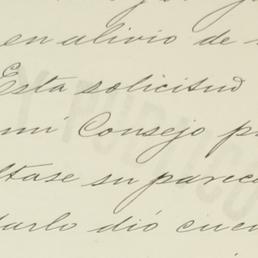 en alivio de
Esta solicitud
mi Consejo p
ltase su parec
darlo dió cue